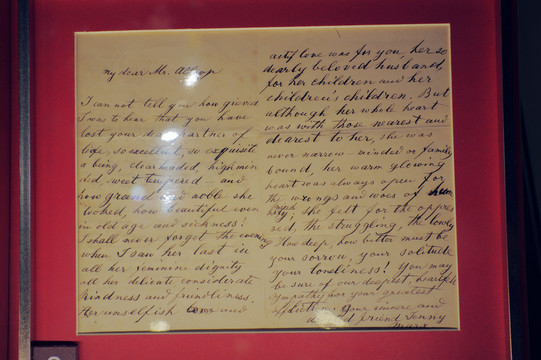 my dear Mr. Allsop
I can not tell you how grieved
I was to hear that you have
lost your dear partner of
life, so excellent, so exquisite
a being, clearheaded, highmin
ded, sweet tempered – and
how grand and noble she
looked, how beautiful even
in old age and sickness!
I shall never forget the evening
when I saw her last in
all her feminine dignity
all her delicate, considerate
kindness and friendliness.
Her unselfish love and
love was for you, her so
dearly beloved husband,
for her children and her
children's children. But
although her whole heart
was with those nearest and
dearest to her, she was
never narrow-minded or family
bound, her warm glowing
heart was always open for
the wrongs and woes of
she felt for the oppres
sed, the struggling, the lowly
How deep, how bitter must be
your sorrow, your solitude
your loneliness! You may
be sure of our deepest, heartfelt
sympathy for your greatest
your sincere and
friend Jenny
Marx